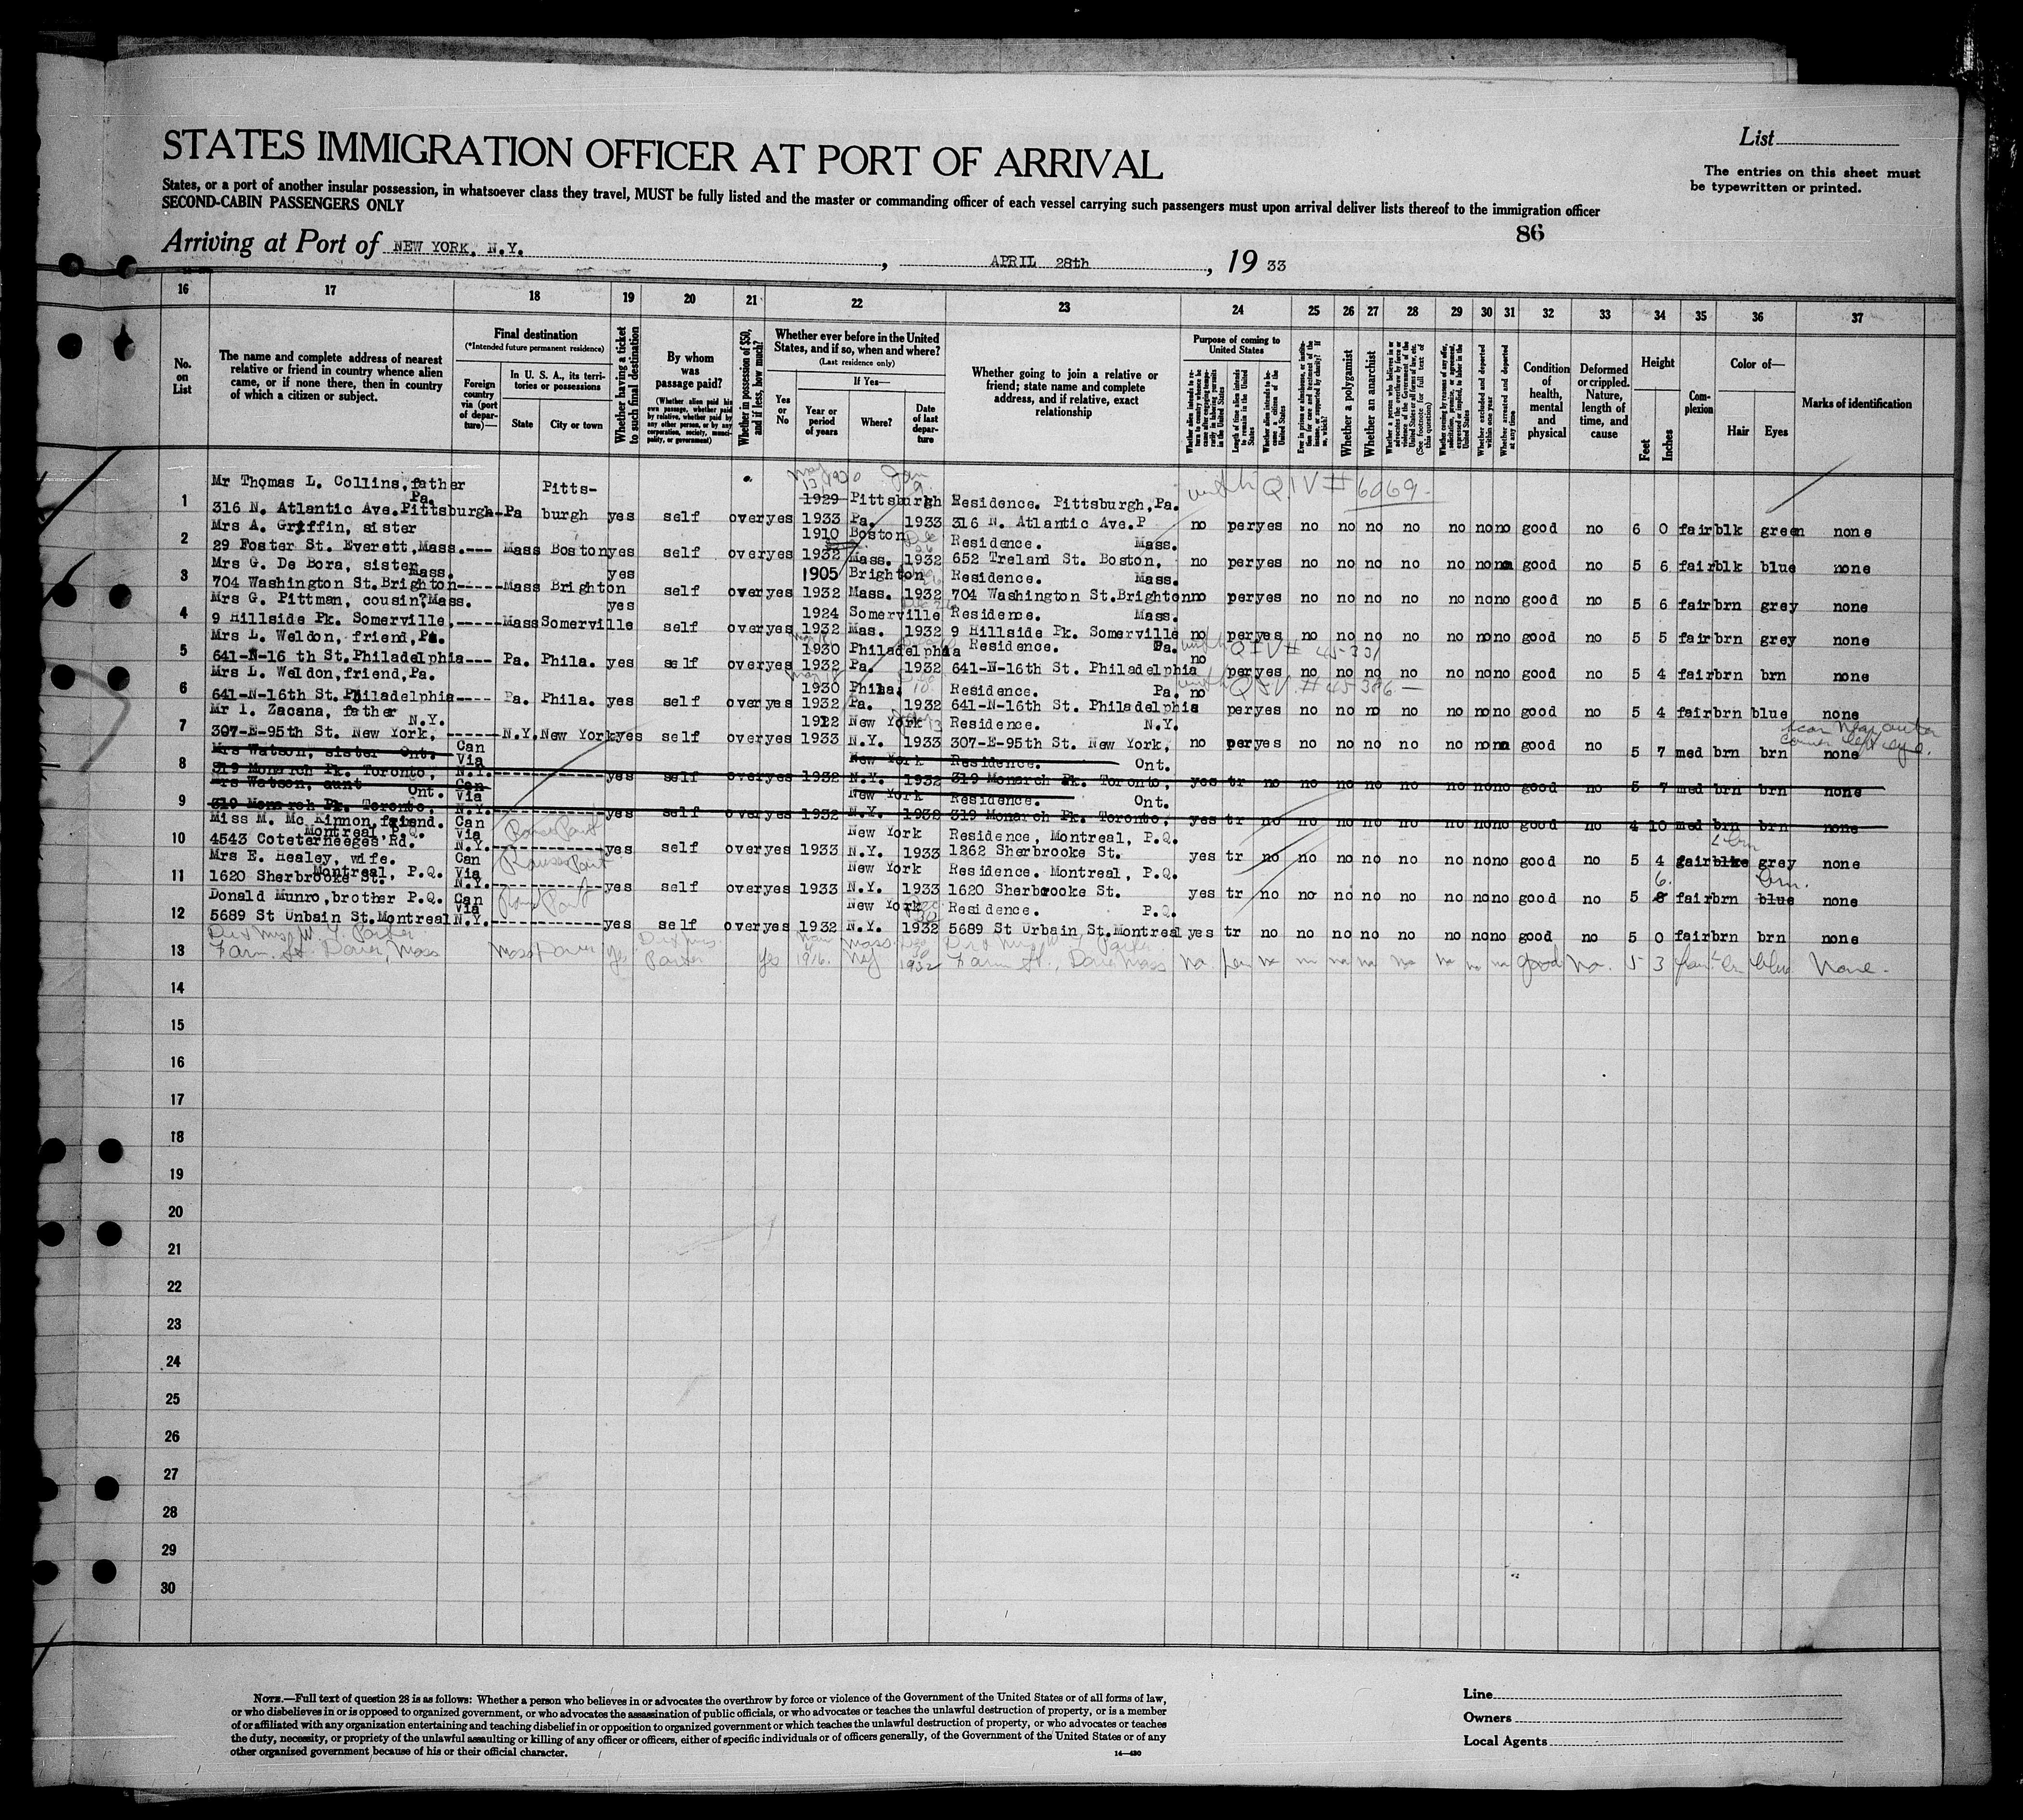 STATES IMMIGRATION OFFICER AT PORT OF ARRIVAL
List
The entries on this sheet must
be typewritten or printed.
States, or a port of another insular possession, in whatsoever class they travel, MUST be fully listed and the master or commanding officer of each vessel carrying such passengers must upon arrival deliver lists thereof to the immigration officer
SECOND-CABIN PASSENGERS ONLY
86
Arriving at Port of NEW YORK, N.Y. , APRIL 28th , 19 33
16 17 18 19 20 21 22 23 24 25 26 27 28 29 30 31 32 33 34 35 36 37
No. on List
The name and complete address of nearest
relative or friend in country whence alien
came, or if none there, then in country
of which a citizen or subject.
Final destination
(*Intended future permanent residence)
Foreign country via (port of departure)—
In U. S. A., its territories or possessions
State
City or town
Whether having a ticket to such final destination
By whom was passage paid?
(Whether alien paid his own passage, whether paid by relative, whether paid by any other person, or by any corporation, society, municipality, or government)
Whether in possession of $50, and if less, how much?
Whether ever before in the United States, and if so, when and where?
(Last residence only)
Yes or No
If Yes—
Year or period of years
Where?
Date of last departure
Whether going to join a relative or
friend; state name and complete
address, and if relative, exact
relationship
Purpose of coming to United States
Whether alien intends to return to country whence he came after engaging temporarily in laboring pursuits in the United States
Length of time alien intends to remain in the United States
Whether alien intends to become a citizen of the United States
Ever in prison or almshouse, or institution for care and treatment of the insane, or supported by charity? If so, which?
Whether a polygamist
Whether an anarchist
Whether a person who believes in or advocates the overthrow by force or violence of the Government of the United States or all forms of law, etc. (See footnote for full text of this question)
Whether coming by reason of any offer, solicitation, promise, or agreement, expressed or implied, to labor in the United States
Whether excluded and deported within one year
Whether arrested and deported at any time
Condition of health, mental and physical
Deformed or crippled. Nature, length of time, and cause
Height
Feet
Inches
Complexion
Color of—
Hair
Eyes
Marks of identification
Mr Thomas L. Collins, father Pa. Pitts- May 13, 1920 Jan 9 with QIV # 6069
1 316 N. Atlantic Ave. Pittsburgh--Pa burgh yes self over yes 1929 1933 Pittsburgh Pa. 1933 Residence. Pittsburgh, Pa. 316 N. Atlantic Ave. P no per yes no no no no no no no good no 6 0 fair blk green none
Mrs A. Griffin, sister
2 29 Foster St. Everett, Mass.--- Mass Boston yes self over yes 1910 1932 Boston Mass. 1932 Residence. Mass. 652 Treland St. Boston, no per yes no no no no no no no good no 5 6 fair blk blue none
Mrs G. De Bora, sister Mass.
3 704 Washington St. Brighton-----Mass Brighton yes self over yes 1905 1932 Brighton Mass. 1932 Residence. Mass. 704 Washington St. Brighton no per yes no no no no no no no good no 5 6 fair brn grey none
Mrs G. Pittman, cousin, Mass.
4 9 Hillside Pk. Somerville, ----- Mass Somerville yes self over yes 1924 1932 Somerville Mas. 1932 Residence. Mass. 9 Hillside Pk. Somerville no per yes no no no no no no no good no 5 5 fair brn grey none
Mrs L. Weldon, friend, Pa. with QIV # 45331
5 641-N-16 th St. Philadelphia--- Pa. Phila. yes self over yes 1930 1932 Philadelphia Pa. 1932 Residence. Pa. 641-N-16th St. Philadelphia no per yes no no no no no no no good no 5 4 fair brn brn none
Mrs L. Weldon, friend, Pa. with QIV # 45386
6 641-N-16th St. Philadelphia---- Pa. Phila. yes self over yes 1930 1932 Phila. Pa. 1932 Residence. Pa. 641-N-16th St. Philadelphia no per yes no no no no no no no good no 5 4 fair brn blue none
Mr I. Zacana, father N.Y. scar near outer corner left eye.
7 307-E-95th St. New York, ------ N.Y. New York yes self over yes 1922 1933 New York N.Y. 1933 Residence. N.Y. 307-E-95th St. New York, no per yes no no no no no no no good no 5 7 med brn brn none
Mrs Watson, sister Ont. Can Via
8 319 Monarch Pk. Toronto, N.Y.------------ yes self over yes 1932 New York N.Y. 1932 Residence. Ont. 319 Monarch Pk. Toronto, yes tr no no no no no no no no good no 5 7 med brn brn none
Mrs Watson, aunt Ont. Can Via
9 319 Monarch Pk. Toronto, N.Y.------------ yes self over yes 1932 New York N.Y. 1932 Residence. Ont. 319 Monarch Pk. Toronto, yes tr no no no no no no no no good no 4 10 med brn brn none
Miss M. Mc Kinnon, friend. Montreal, P.Q. Can Via
10 4543 Coteterneeges Rd. N.Y.------------ yes self over yes 1933 New York N.Y. 1933 Residence, Montreal, P.Q. 1262 Sherbrooke St. yes tr no no no no no no no no good no 5 4 fair grey none
Mrs E. Healey, wife. Montreal, P.Q. Can Via
11 1620 Sherbrooke St. N.Y.------------ yes self over yes 1933 New York N.Y. 1933 Residence. Montreal, P.Q. 1620 Sherbrooke St. yes tr no no no no no no no no good no 5 8 6. fair brn blue brn. none
Donald Munro, brother P.Q. Can Via
12 5689 St Urbain St. Montreal N.Y.------------ yes self over yes 1932 New York N.Y. 1932 Residence. P.Q. 5689 St Urbain St. Montreal yes tr no no no no no no no no good no 5 0 fair brn brn none
Dr & Mrs W. Y. Parker
13 Farm St. Dover, Mass Mass Dover yes Dr & Mrs Parker yes 1916. Mass. 1932 Dr & Mrs W Y Parker Farm St., Dover Mass no per no no no no no no no no good no. 5 3 fair blue None.
14
15
16
17
18
19
20
21
22
23
24
25
26
27
28
29
30
NOTE.—Full text of question 28 is as follows: Whether a person who believes in or advocates the overthrow by force or violence of the Government of the United States or of all forms of law,
or who disbelieves in or is opposed to organized government, or who advocates the assassination of public officials, or who advocates or teaches the unlawful destruction of property, or is a member
of or affiliated with any organization entertaining and teaching disbelief in or opposition to organized government or which teaches the unlawful destruction of property, or who advocates or teaches
the duty, necessity, or propriety of the unlawful assaulting or killing of any officer or officers, either of specific individuals or of officers generally, of the Government of the United States or of any
other organized government because of his or their official character.
14—430
Line
Owners
Local Agents